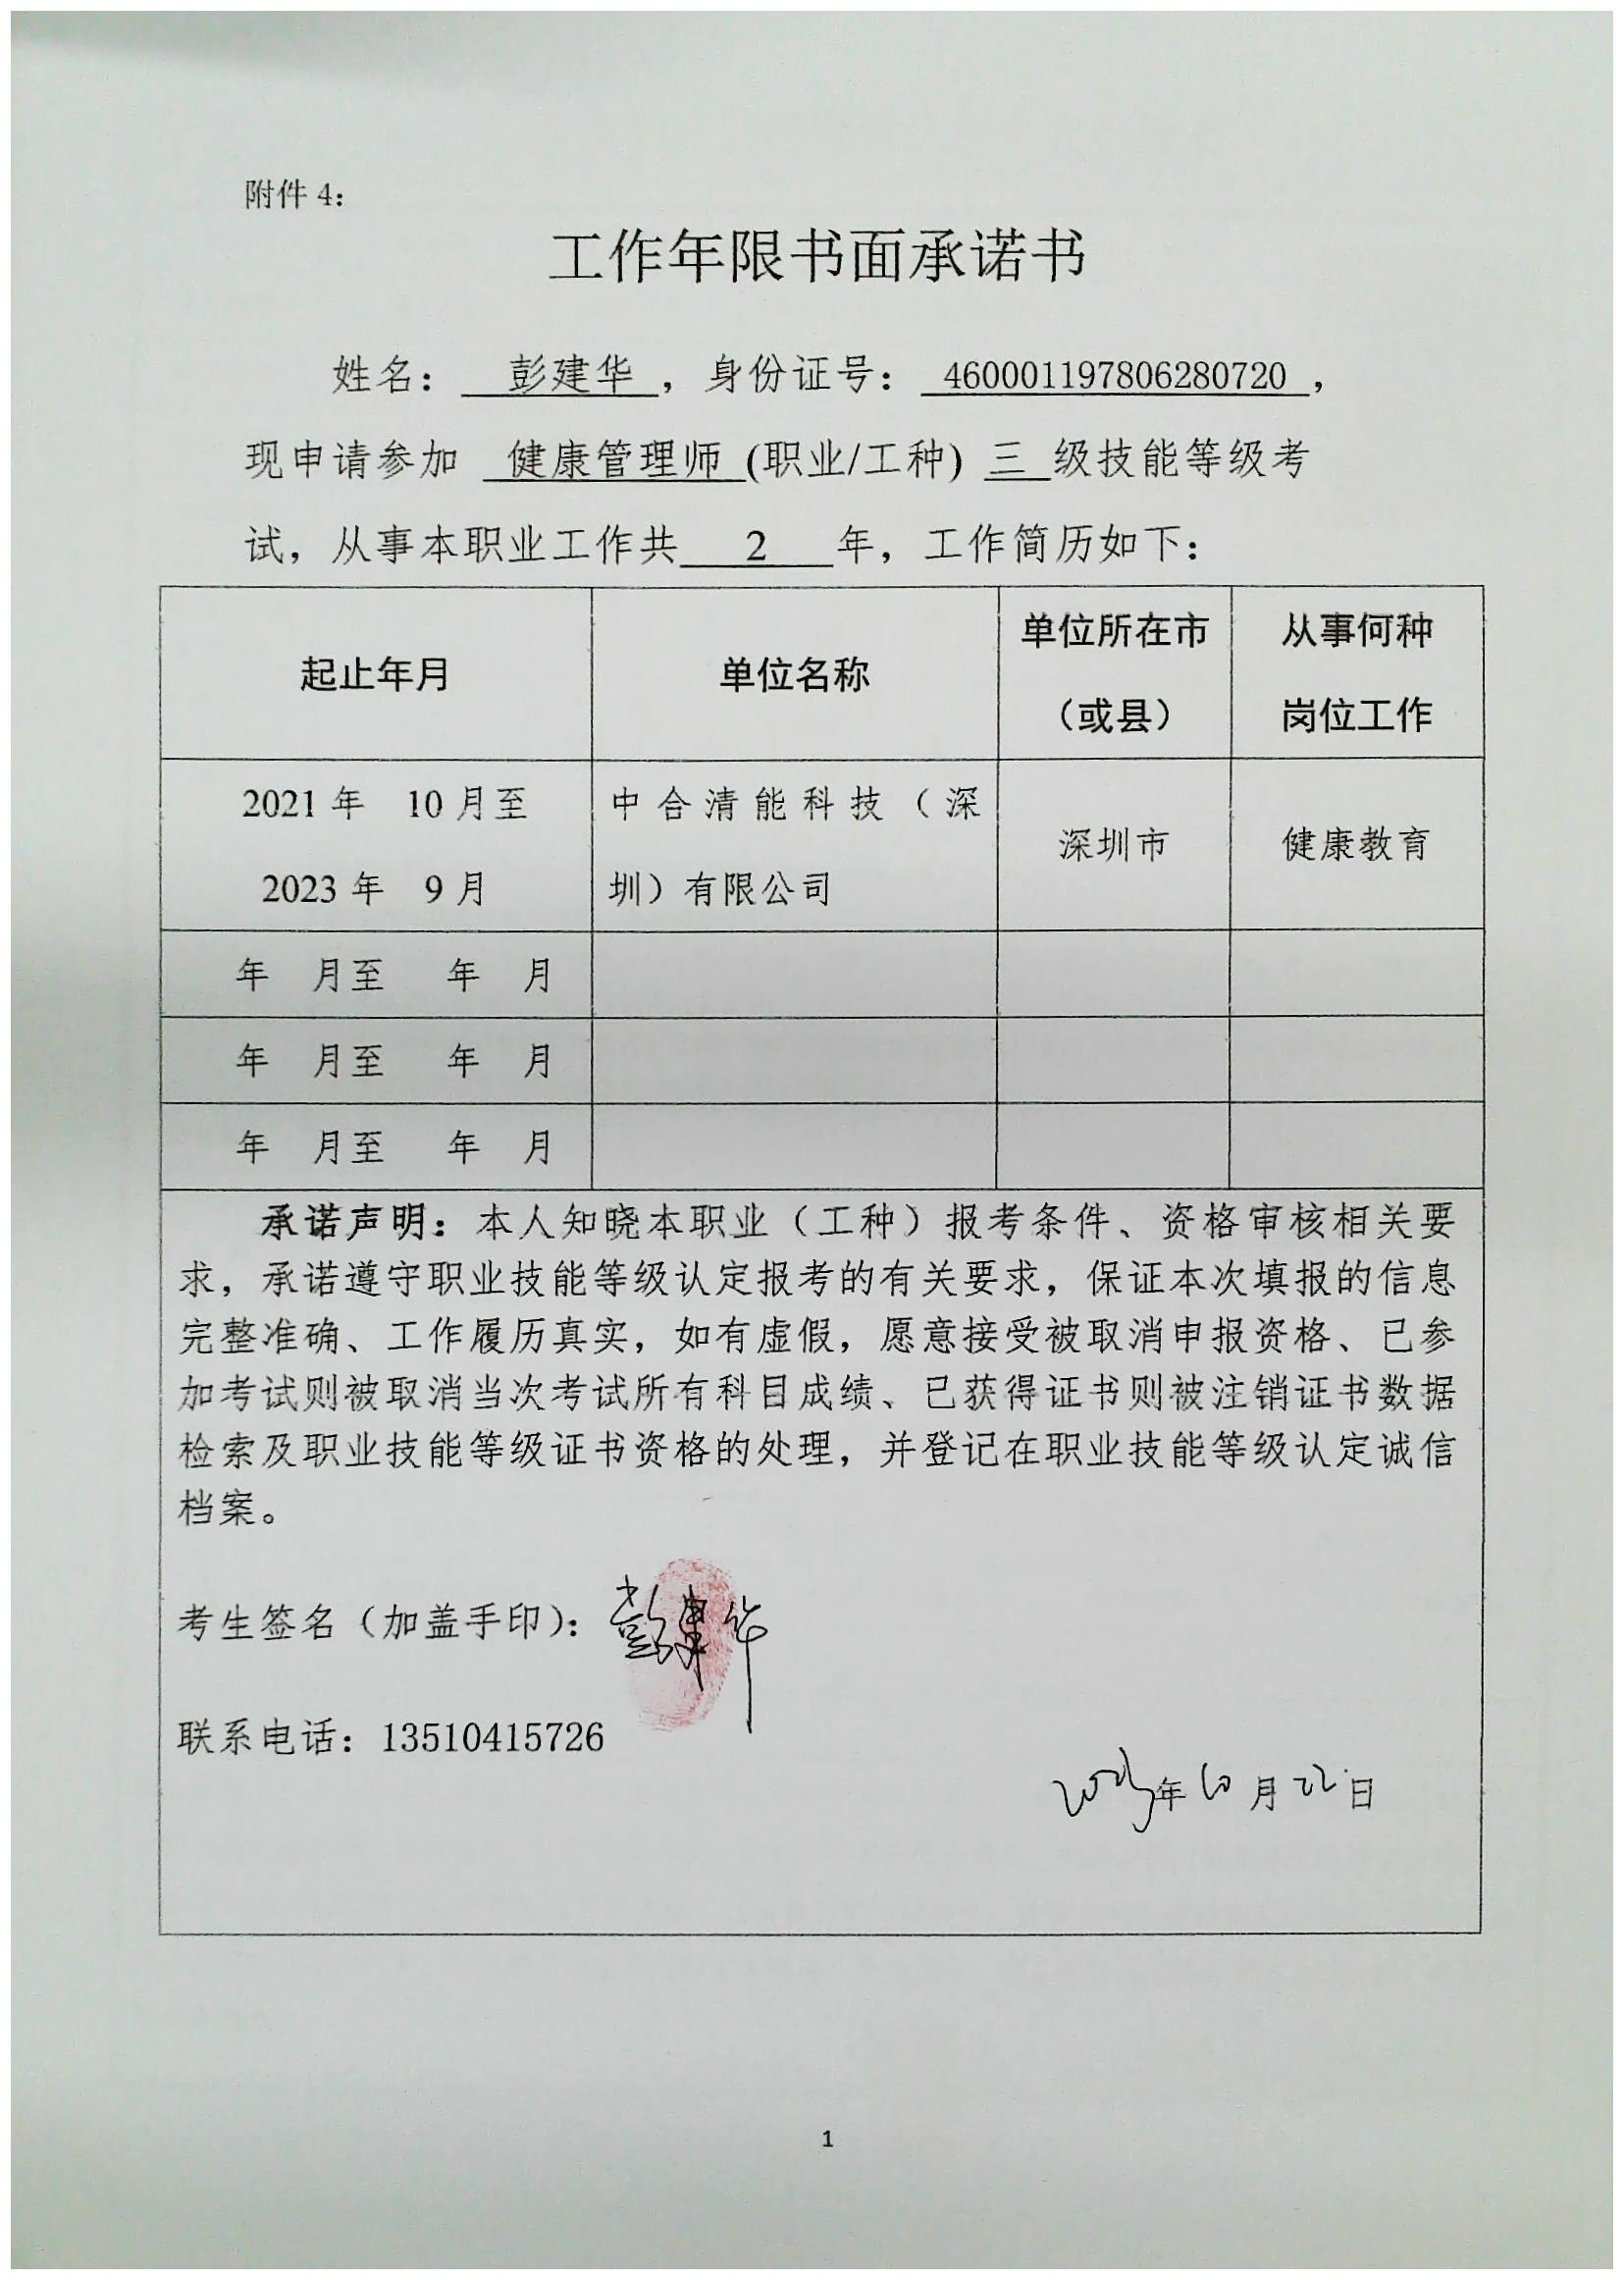 附件 4：
工作年限书面承诺书
姓名： 彭建华 ，身份证号： 460001197806280720 ，
现申请参加 健康管理师 (职业/工种) 三 级技能等级考
试，从事本职业工作共 2 年，工作简历如下：
起止年月 单位名称 单位所在市（或县） 从事何种岗位工作
2021 年 10 月至 中合清能科技（深
2023 年 9 月 圳）有限公司 深圳市 健康教育
年 月至 年 月
年 月至 年 月
年 月至 年 月
承诺声明：本人知晓本职业（工种）报考条件、资格审核相关要
求，承诺遵守职业技能等级认定报考的有关要求，保证本次填报的信息
完整准确、工作履历真实，如有虚假，愿意接受被取消申报资格、已参
加考试则被取消当次考试所有科目成绩、已获得证书则被注销证书数据
检索及职业技能等级证书资格的处理，并登记在职业技能等级认定诚信
档案。
考生签名（加盖手印）：彭建华
联系电话：13510415726
2023年10月22日
1